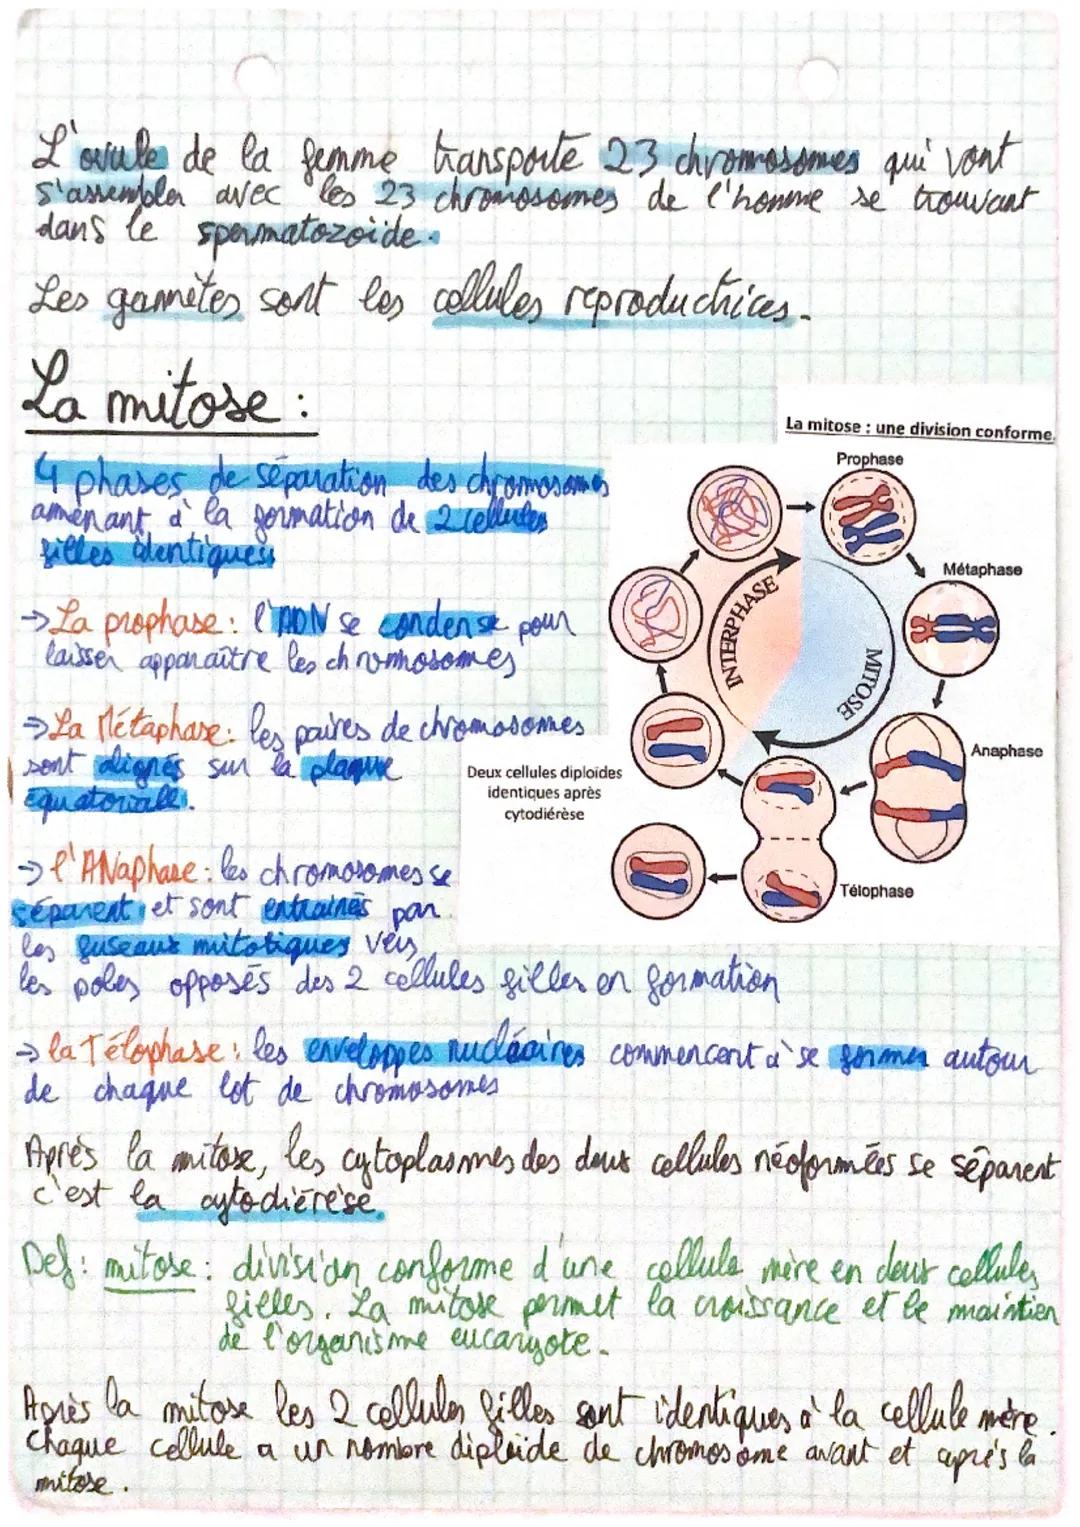 L'ovule de la femme transporte 23 chromosomes qui vont
s'assembler avec les 23 chromosomes de l'homme se trouvant
dans le spermatozoïde.
Les gamètes sont les cellules reproductrices.
La mitose :
4 phases de séparation des chromosomes
amenant à la formation de 2 cellules
filles identiques
→ La prophase : l'ADN se condense pour
laisser apparaître les chromosomes
→ La Métaphase : les paires de chromosomes
sont alignés sur la plaque
équatoriale.
→ l'ANaphase : les chromosomes se
séparent et sont entrainés par
les fuseaux mitotiques vers
les poles opposés des 2 cellules filles en formation
→ la Télophase : les enveloppes nucléaires commencent à se former autour
de chaque lot de chromosomes
La mitose : une division conforme.
Prophase
Métaphase
Anaphase
Télophase
INTERPHASE
MITOSE
Deux cellules diploïdes
identiques après
cytodiérèse
Après la mitose, les cytoplasmes des deux cellules néoformées se séparent
c'est la cytodiérèse.
Def : mitose : division conforme d'une cellule mère en deux cellules
filles. La mitose permet la croissance et le maintien
de l'organisme eucaryote.
Après la mitose les 2 cellules filles sont identiques à la cellule mère.
Chaque cellule a un nombre diploïde de chromosome avant et après la
mitose.